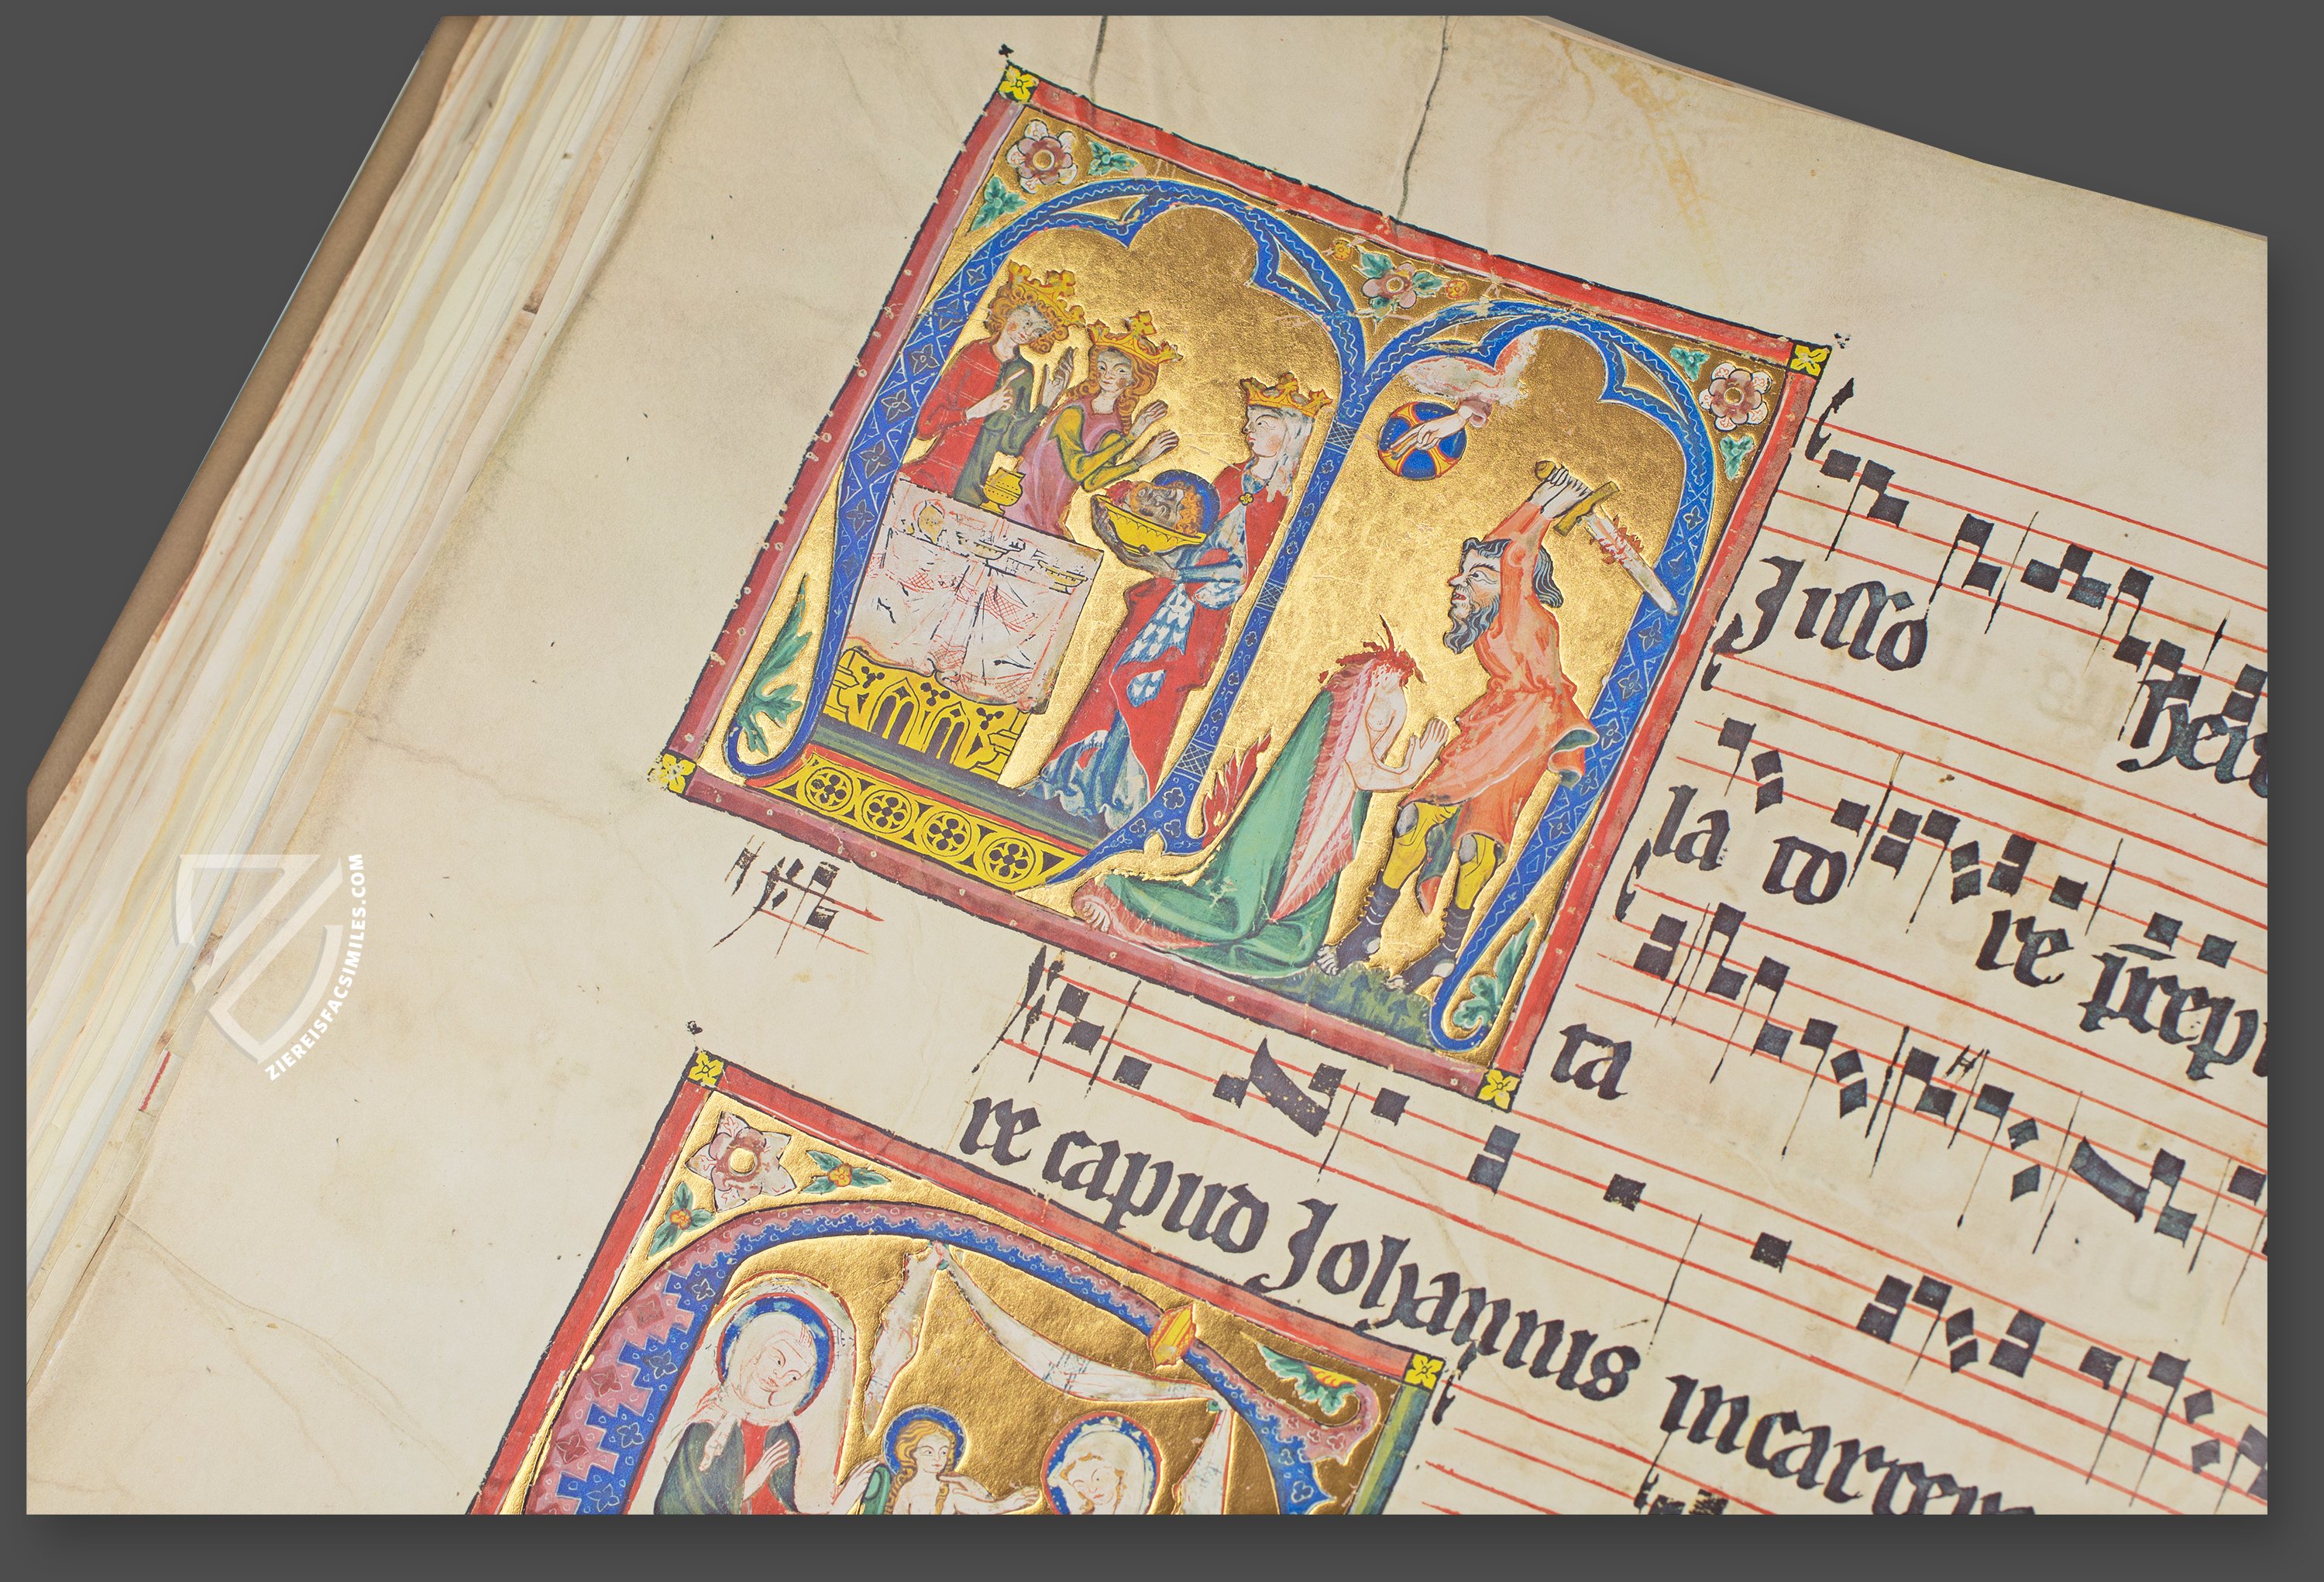 Misso Hero
la to re precep
ta
re capud Johannis
incarcere
ZIEREISFACSIMILES.COM